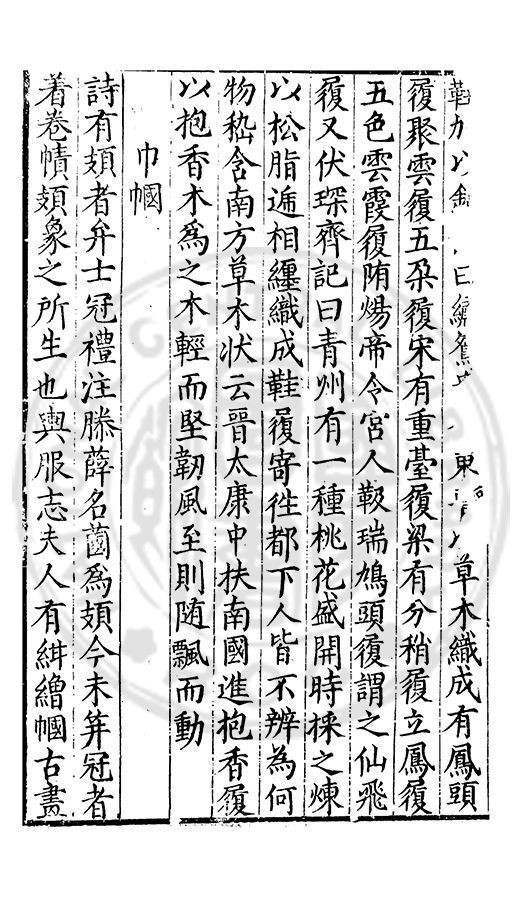 草木織成有鳳頭
履聚雲履五朶履宋有重臺履梁有分稍履立鳳履
五色雲霞履陏煬帝令宮人靸瑞鳩頭履謂之仙飛
履又伏琛齊記曰青州有一種桃花盛開時採之煉
以松脂遍相纒織成鞋履寄徃都下人皆不辨為何
物嵇含南方草木状云晉太康中扶南國進抱香履
以抱香木爲之木輕而堅韌風至則随飄而動
巾幗
詩有頍者弁士冠禮注滕薛名蔮爲頍今未笄冠者
着卷幘頍象之所生也輿服志夫人有紺繒幗古畫